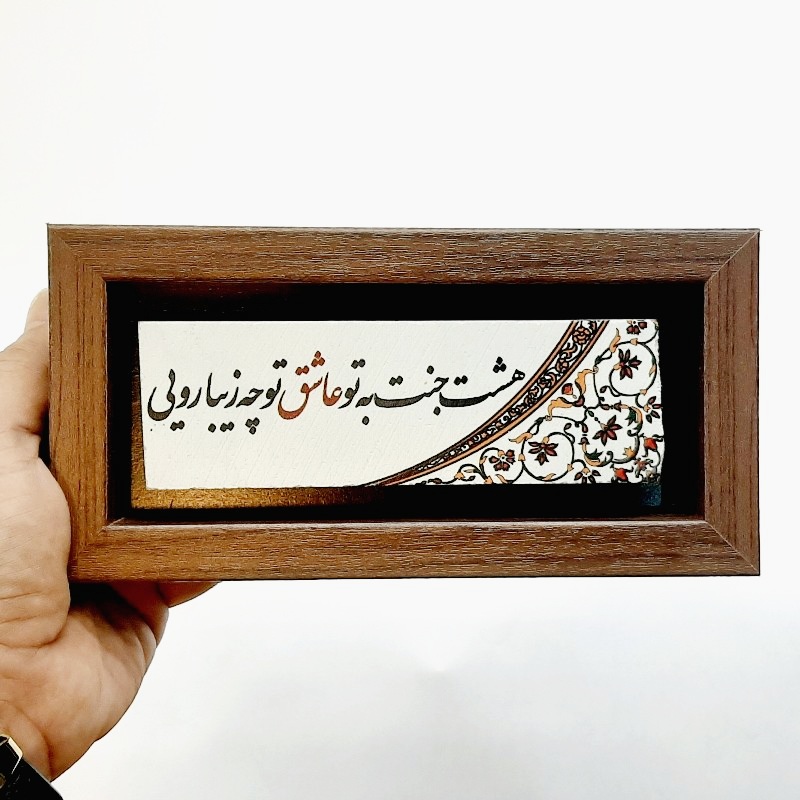 هشت جنت به تو عاشق تو چه زیبا رویی